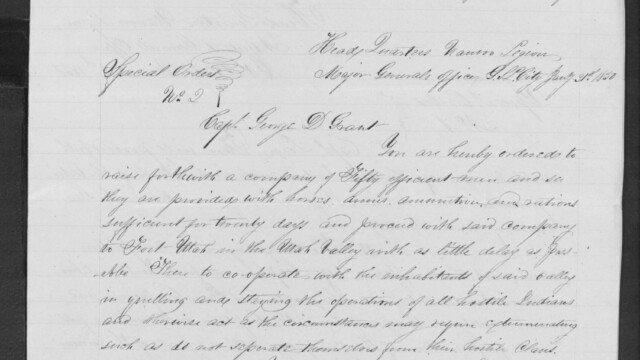 Head Quarters Nauvoo Legion
Major Generals Office G. S. L. City Jany 31st 1850
Special Orders
No 2
Capt. George D Grant
You are hereby ordered to
raise forthwith a company of Fifty efficient men and see
they are provided with horses arms, amunition, and rations
sufficient for twenty days and proceed with said company
to Fort Utah in the Utah Valley with as little delay as pos-
sible There to co-operate with the inhabitants of said valley
in quelling and staying the operations of all hostile Indians
and otherwise act as the circumstances may require exterminating
such as do not seperate themselves from their hostile Clans.